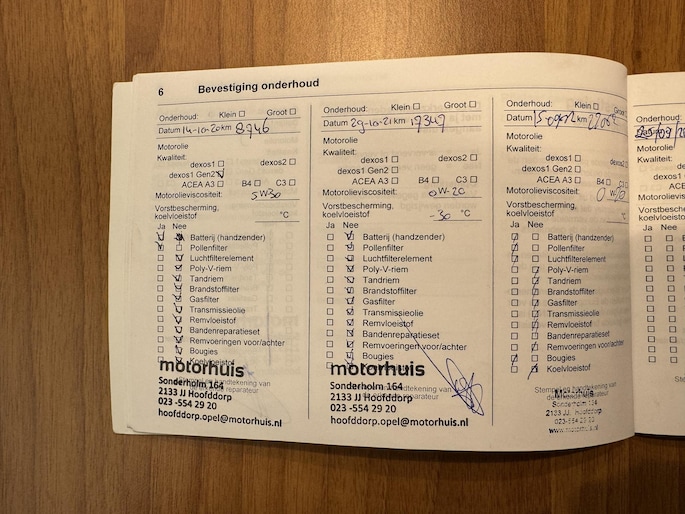 6 Bevestiging onderhoud
Onderhoud: Klein Groot
Datum 14-10-20 km 8946
Motorolie
Kwaliteit:
dexos1 dexos2
dexos1 Gen2
ACEA A3 B4 C3
Motorolieviscositeit: 5W30
Vorstbescherming,
koelvloeistof °C
Ja Nee
Batterij (handzender)
Pollenfilter
Luchtfilterelement
Poly-V-riem
Tandriem
Brandstoffilter
Gasfilter
Transmissieolie
Remvloeistof
Bandenreparatieset
Remvoeringen voor/achter
Bougies
Koelvloeistof
motorhuis
Sonderholm 164
2133 JJ Hoofddorp
023 -554 29 20
hoofddorp.opel@motorhuis.nl
Onderhoud: Klein Groot
Datum 29-10-21 km 17347
Motorolie
Kwaliteit:
dexos1 dexos2
dexos1 Gen2
ACEA A3 B4 C3
Motorolieviscositeit: 0W-20
Vorstbescherming,
koelvloeistof -30 °C
Ja Nee
Batterij (handzender)
Pollenfilter
Luchtfilterelement
Poly-V-riem
Tandriem
Brandstoffilter
Gasfilter
Transmissieolie
Remvloeistof
Bandenreparatieset
Remvoeringen voor/achter
Bougies
Koelvloeistof
motorhuis
Sonderholm 164
2133 JJ Hoofddorp
023 -554 29 20
hoofddorp.opel@motorhuis.nl
Onderhoud: Klein Groot
Datum km
Motorolie
Kwaliteit:
dexos1 dexos2
dexos1 Gen2
ACEA A3 B4 C3
Motorolieviscositeit: 0W-20
Vorstbescherming,
koelvloeistof °C
Ja Nee
Batterij (handzender)
Pollenfilter
Luchtfilterelement
Poly-V-riem
Tandriem
Brandstoffilter
Gasfilter
Transmissieolie
Remvloeistof
Bandenreparatieset
Remvoeringen voor/achter
Bougies
Koelvloeistof
Stempel en handtekening van
Motorhuis
Sonderholm 164
2133 JJ Hoofddorp
023-554 29 20
www.motorhuis.nl
Onderhoud:
Motorolie
Kwaliteit:
Ja Nee